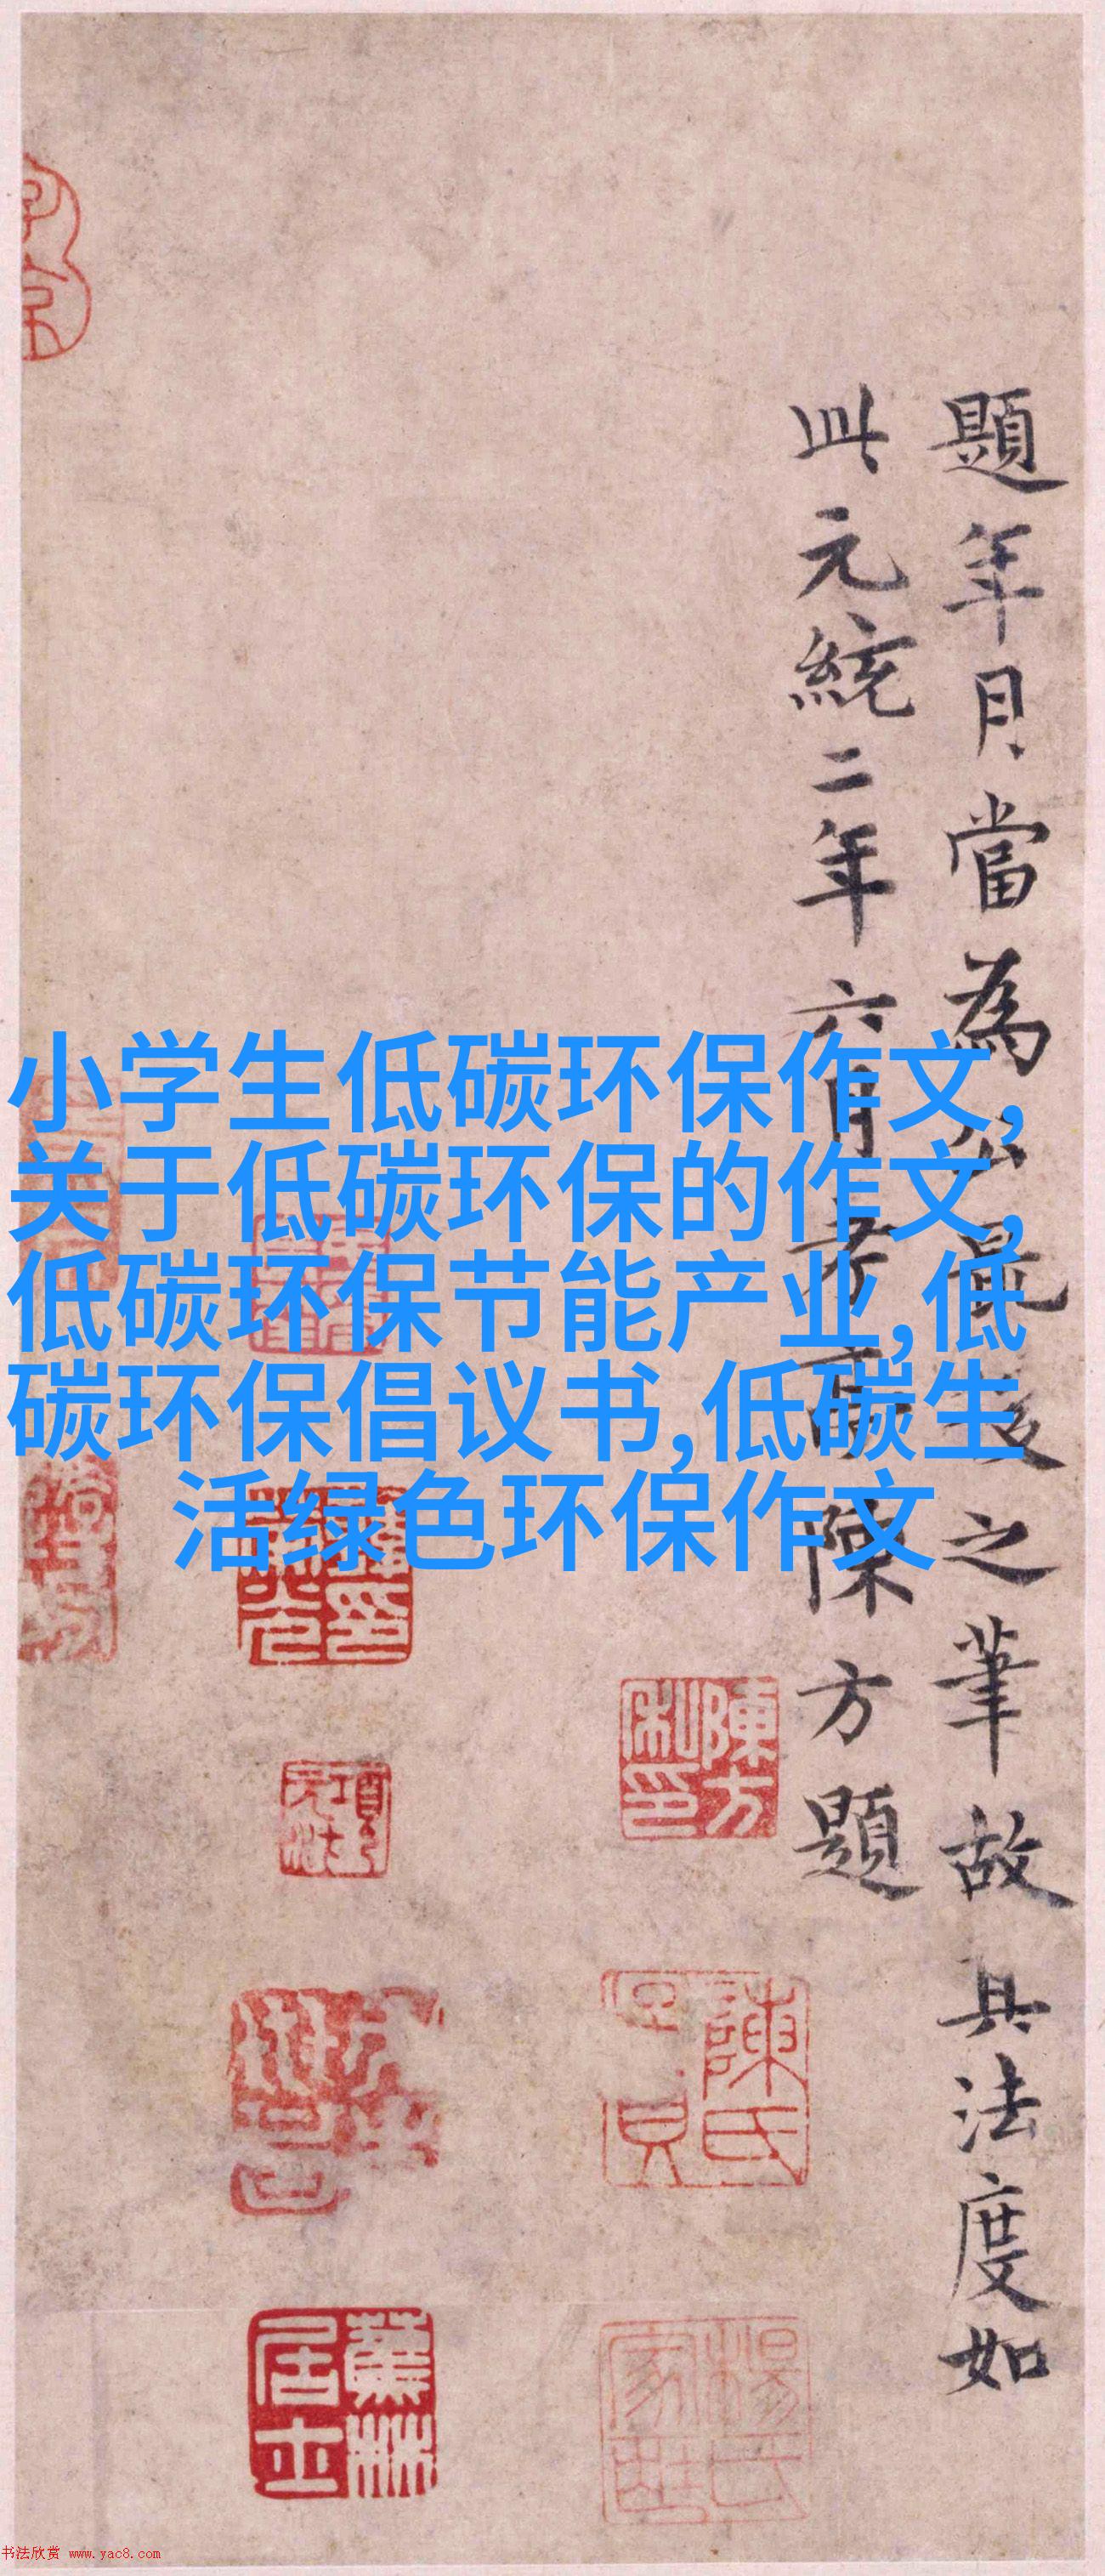 題年月當為公最後之筆故其法度如
此元統二年六月考商陳方題
小学生低碳环保作文,
关于低碳环保的作文,
低碳环保节能产业,低
碳环保倡议书,低碳生
活绿色环保作文
陳方
私印
項元汴印
陳氏
蕉林
居士
楊氏
家藏
书法欣赏 www.yac8.com